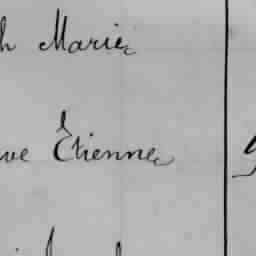 h Marie
ve Etienne